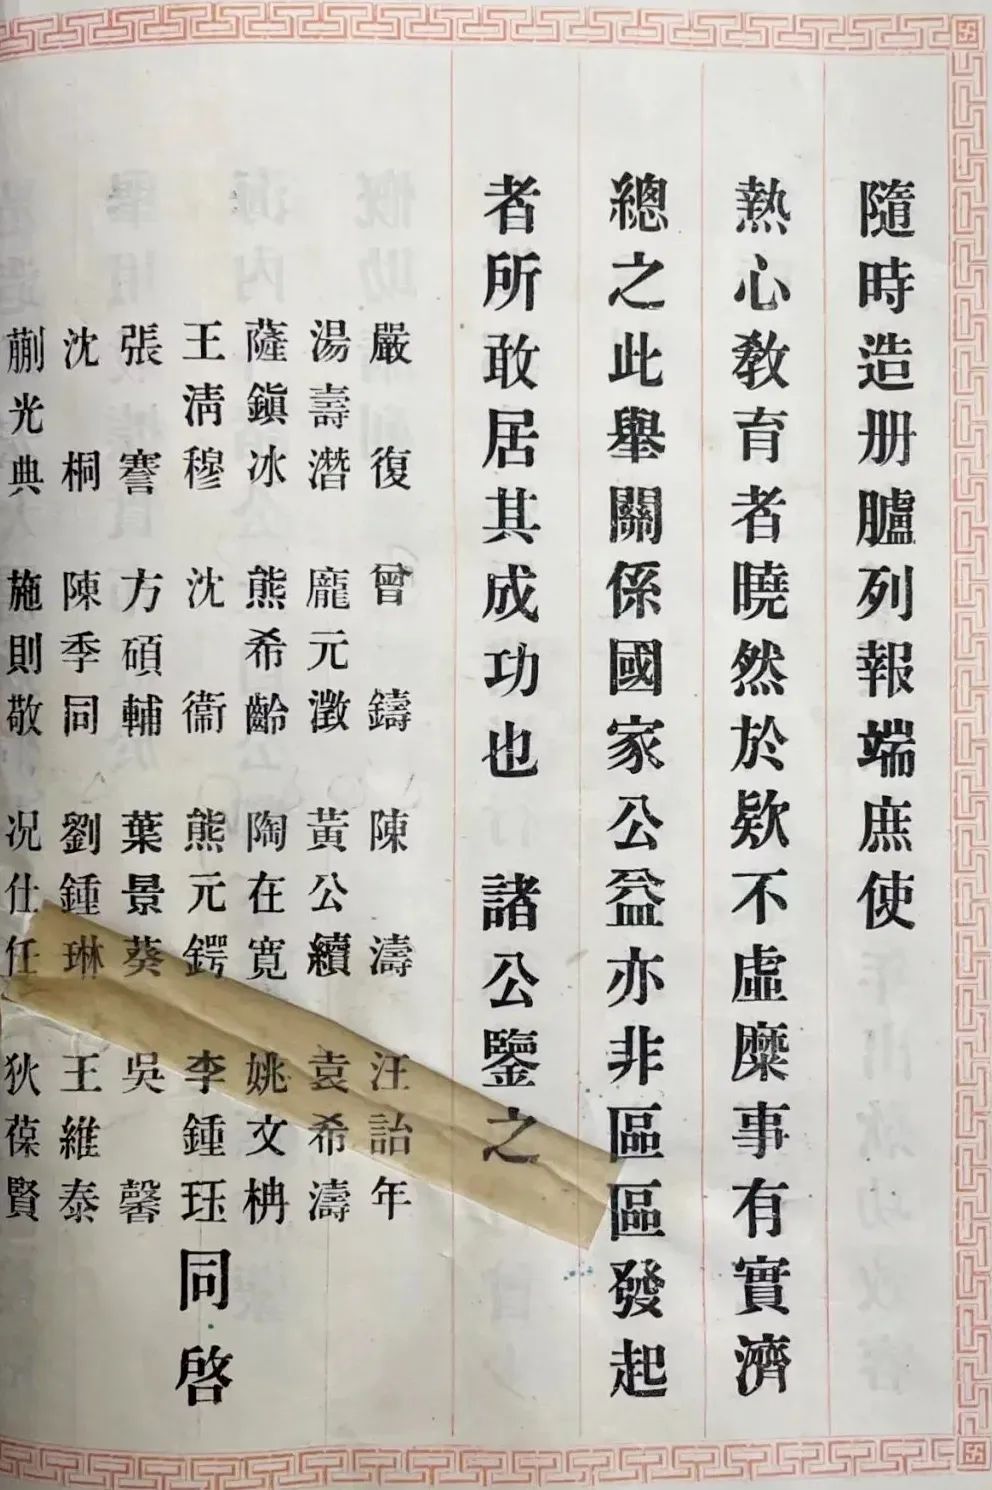 隨時造册臚列報端庶使
熱心敎育者曉然於欵不虛糜事有實濟
總之此舉關係國家公益亦非區區發起
者所敢居其成功也 諸公鑒之
嚴 復 曾 鑄 陳 濤 汪詒年
湯壽潛 龐元澂 黃公續 袁希濤
薩鎭冰 熊希齡 陶在寬 姚文枏
王淸穆 沈 衞 熊元鍔 李鍾珏 同啓
張 謇 方碩輔 葉景葵 吳 馨
沈 桐 陳季同 劉鍾琳 王維泰
蒯光典 施則敬 况仕任 狄葆賢